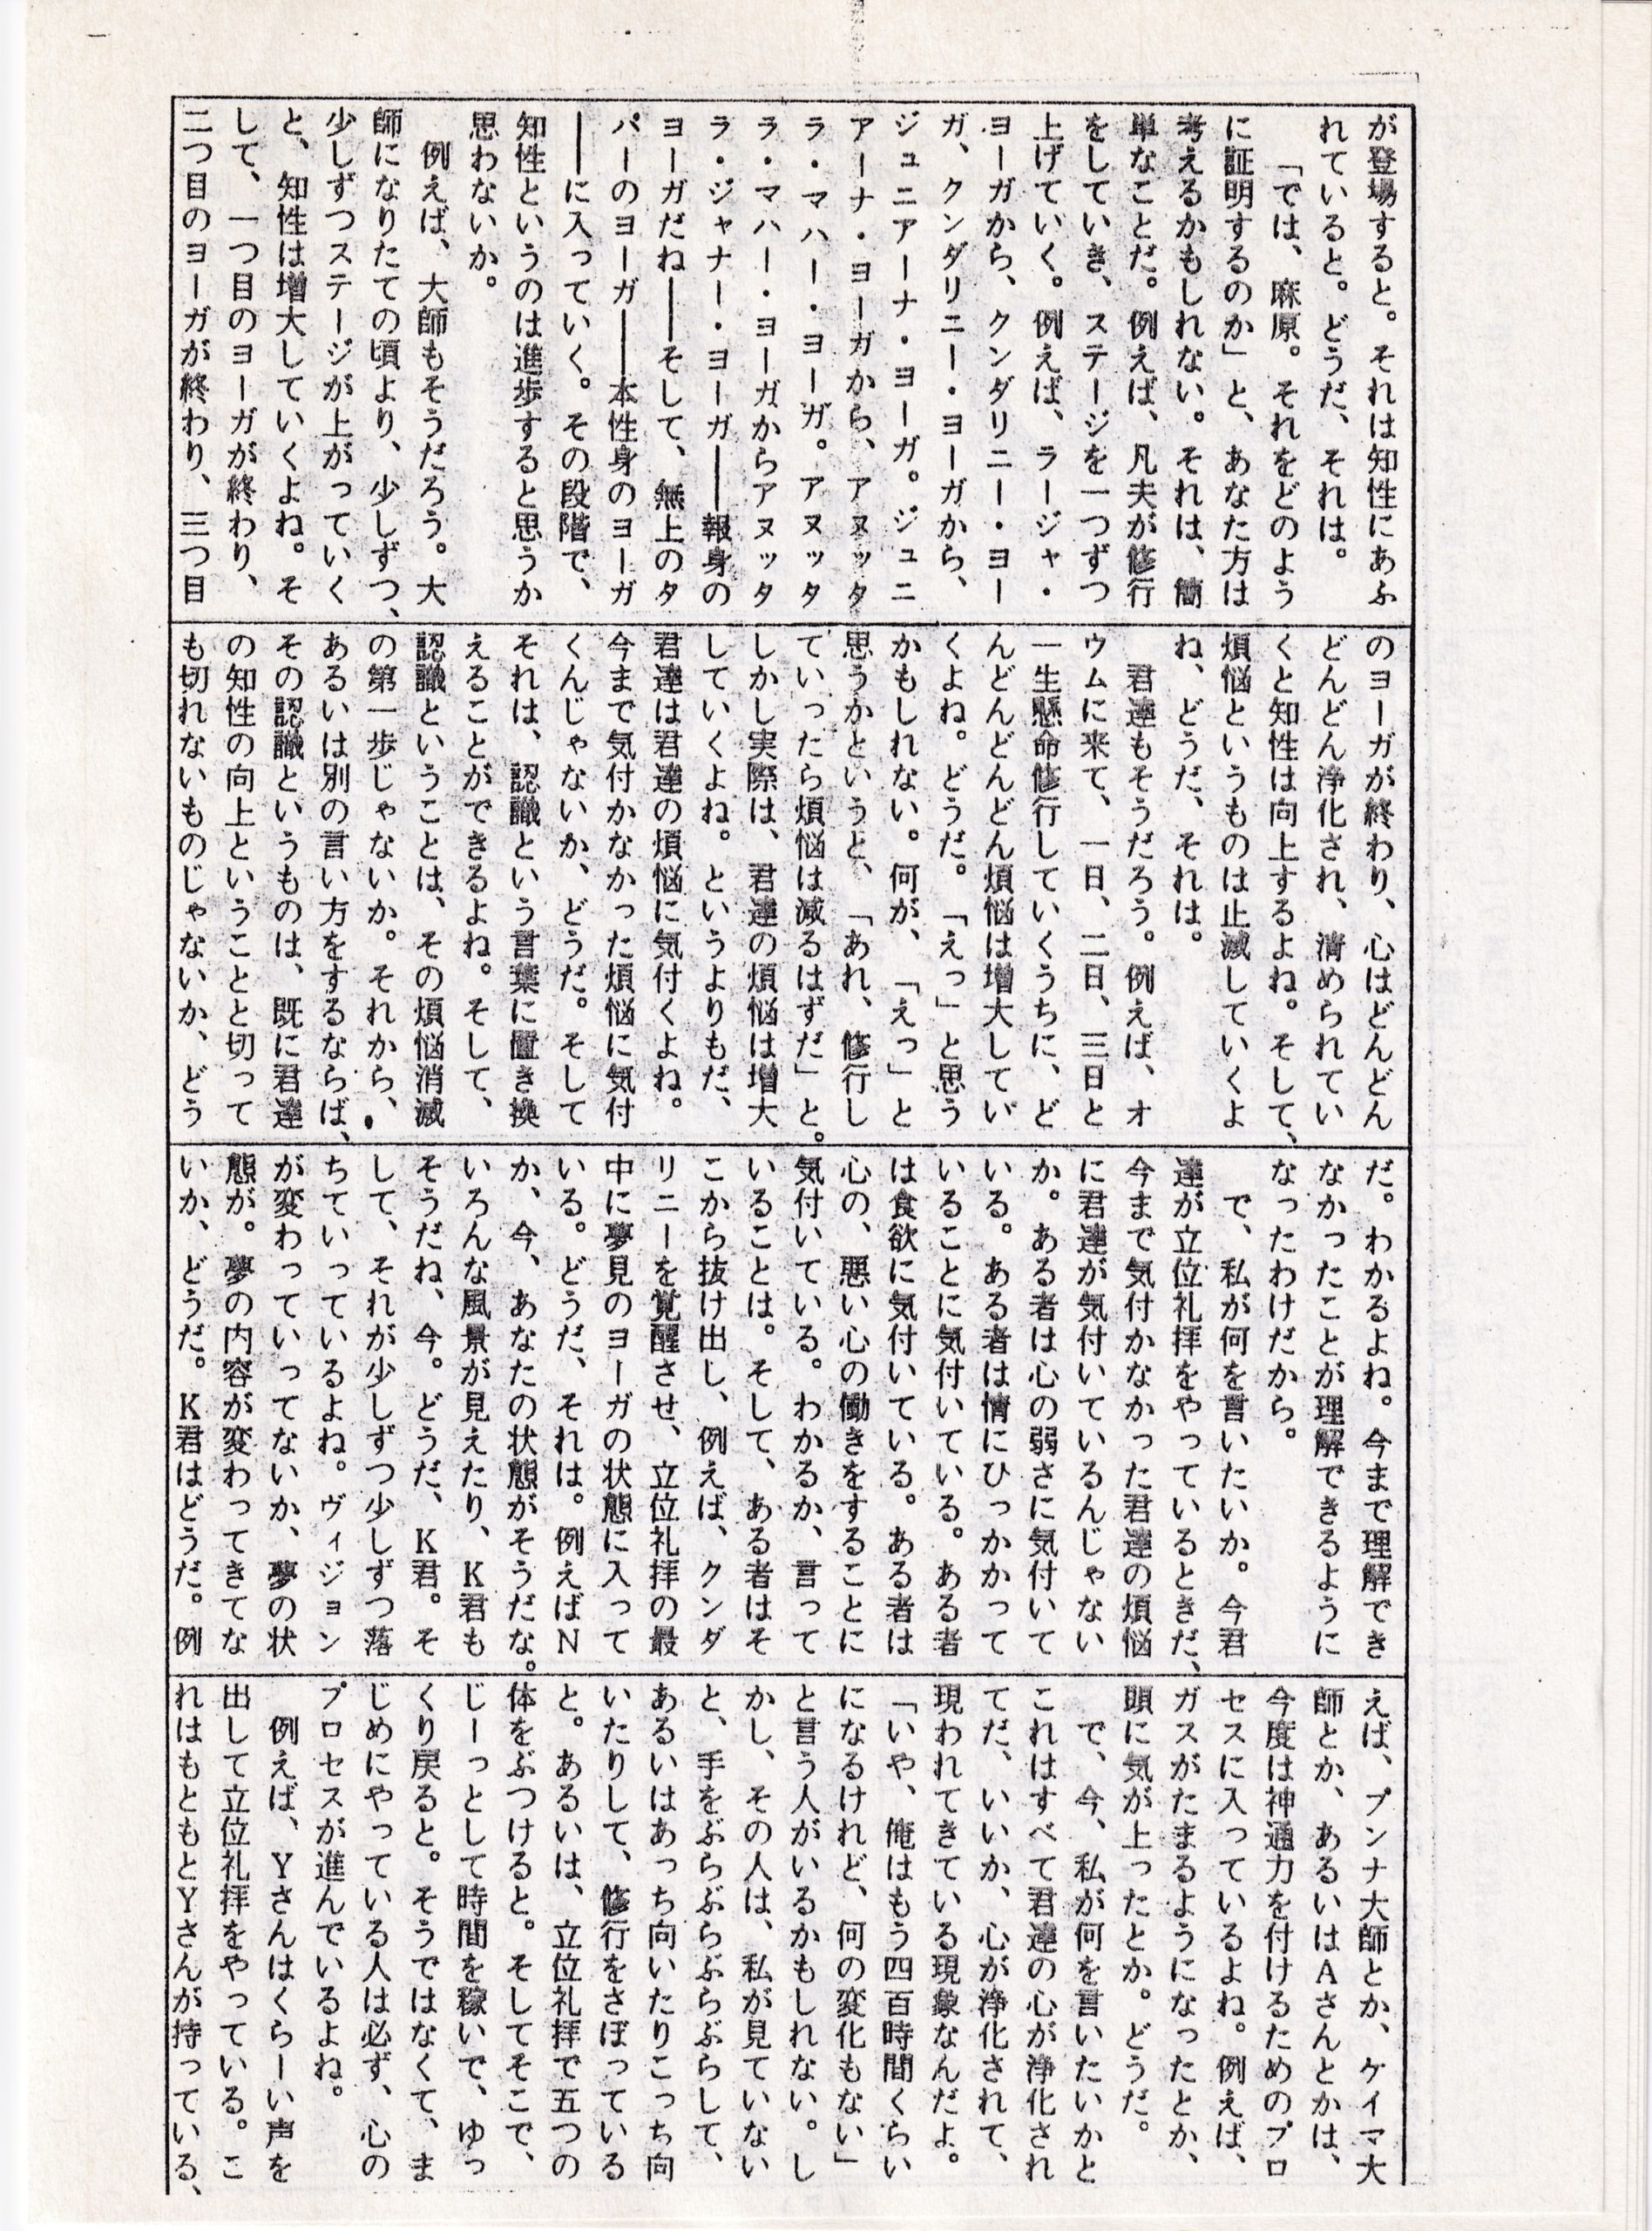 が登場すると。それは知性にあふ
れていると。どうだ、それは。
「では、麻原。それをどのよう
に証明するのか」と、あなた方は
考えるかもしれない。それは、簡
単なことだ。例えば、凡夫が修行
をしていき、ステージを一つずつ
上げていく。例えば、ラージャ・
ヨーガから、クンダリニー・ヨー
ガ、クンダリニー・ヨーガから、
ジュニアーナ・ヨーガ。ジュニ
アーナ・ヨーガから、アヌッタ
ラ・マハー・ヨーガ。アヌッタ
ラ・マハー・ヨーガからアヌッタ
ラ・ジャナー・ヨーガ――報身の
ヨーガだね――そして、無上のタ
パーのヨーガ――本性身のヨーガ
――に入っていく。その段階で、
知性というのは進歩すると思うか
思わないか。
例えば、大師もそうだろう。大
師になりたての頃より、少しずつ、
少しずつステージが上がっていく
と、知性は増大していくよね。そ
して、一つ目のヨーガが終わり、
二つ目のヨーガが終わり、三つ目
のヨーガが終わり、心はどんどん
どんどん浄化され、清められてい
くと知性は向上するよね。そして、
煩悩というものは止滅していくよ
ね、どうだ、それは。
君達もそうだろう。例えば、オ
ウムに来て、一日、二日、三日と
一生懸命修行していくうちに、ど
んどんどんどん煩悩は増大してい
くよね。どうだ。「えっ」と思う
かもしれない。何が、「えっ」と
思うかというと、「あれ、修行し
ていったら煩悩は減るはずだ」と。
しかし実際は、君達の煩悩は増大
していくよね。というよりもだ、
君達は君達の煩悩に気付くよね。
今まで気付かなかった煩悩に気付
くんじゃないか、どうだ。そして
それは、認識という言葉に置き換
えることができるよね。そして、
認識ということは、その煩悩消滅
の第一歩じゃないか。それから、
あるいは別の言い方をするならば、
その認識というものは、既に君達
の知性の向上ということと切って
も切れないものじゃないか、どう
だ。わかるよね。今まで理解でき
なかったことが理解できるように
なったわけだから。
で、私が何を言いたいか。今君
達が立位礼拝をやっているときだ、
今まで気付かなかった君達の煩悩
に君達が気付いているんじゃない
か。ある者は心の弱さに気付いて
いる。ある者は情にひっかかって
いることに気付いている。ある者
は食欲に気付いている。ある者は
心の、悪い心の働きをすることに
気付いている。わかるか、言って
いることは。そして、ある者はそ
こから抜け出し、例えば、クンダ
リニーを覚醒させ、立位礼拝の最
中に夢見のヨーガの状態に入って
いる。どうだ、それは。例えばN
か、今、あなたの状態がそうだな。
いろんな風景が見えたり、K君も
そうだね、今。どうだ、K君。そ
して、それが少しずつ少しずつ落
ちていっているよね。ヴィジョン
が変わっていってないか、夢の状
態が。夢の内容が変わってきてな
いか、どうだ。K君はどうだ。例
えば、プンナ大師とか、ケイマ大
師とか、あるいはAさんとかは、
今度は神通力を付けるためのプロ
セスに入っているよね。例えば、
ガスがたまるようになったとか、
頭に気が上ったとか。どうだ。
で、今、私が何を言いたいかと
これはすべて君達の心が浄化され
てだ、いいか、心が浄化されて、
現われてきている現象なんだよ。
「いや、俺はもう四百時間くらい
になるけれど、何の変化もない」
と言う人がいるかもしれない。し
かし、その人は、私が見ていない
と、手をぶらぶらぶらぶらして、
あるいはあっち向いたりこっち向
いたりして、修行をさぼっている
と。あるいは、立位礼拝で五つの
体をぶつけると。そしてそこで、
じーっとして時間を稼いで、ゆっ
くり戻ると。そうではなくて、ま
じめにやっている人は必ず、心の
プロセスが進んでいるよね。
例えば、Yさんはくらーい声を
出して立位礼拝をやっている。こ
れはもともとYさんが持っている、